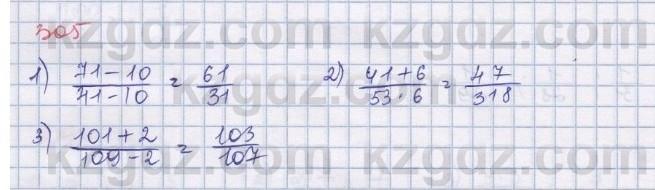 305
1) 71-10/41-10 = 61/31 2) 41+6/53·6 = 47/318
3) 101+2/109-2 = 103/107
kzgdz.com kzgdz.com
kzgdz.com kzgdz.com
kzgdz.com kzgdz.com